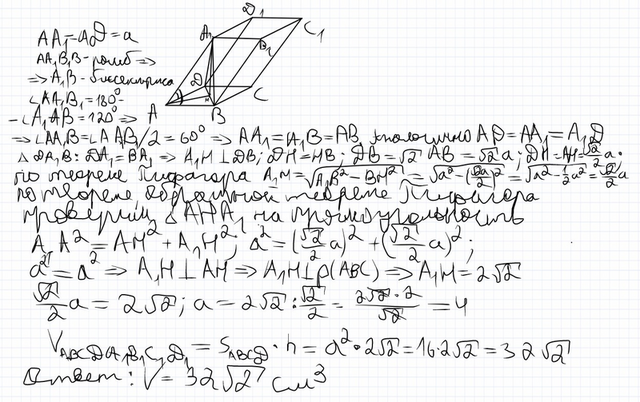 AA₁=AD=a
AA₁B₁B-ромб ⇒
⇒ A₁B-биссектриса
∠AA₁B₁=180°-
-∠A₁AB=120° ⇒
⇒ ∠AA₁B=∠AA₁B₁/2=60° ⇒ AA₁=A₁B=AB аналогично AD=AA₁=A₁D
△DA₁B: DA₁=BA₁ ⇒ A₁H⊥DB; DH=HB; DB=√2 AB=√2a; DH=AH=√2/2 a.
по теореме Пифагора A₁H=√(A₁B²-BH²)=√(a²-(√2a/2)²)=√(a²-1/2a²)=√2/2 a
по теореме обратной теореме Пифагора
проверим △AHA₁ на прямоугольность
A₁A²=AH²+A₁H²; a²=(√2/2 a)²+(√2/2 a)²;
a²=a² ⇒ A₁H⊥AH ⇒ A₁H⊥p(ABC) ⇒ A₁H=2√2
√2/2 a=2√2; a=2√2:√2/2=2√2·2/√2=4
V ABCDA₁B₁C₁D₁=S ABCD·h=a²·2√2=16·2√2=32√2
Ответ: V=32√2 см³
D₁
C₁
A₁
B₁
D
C
H
A
B